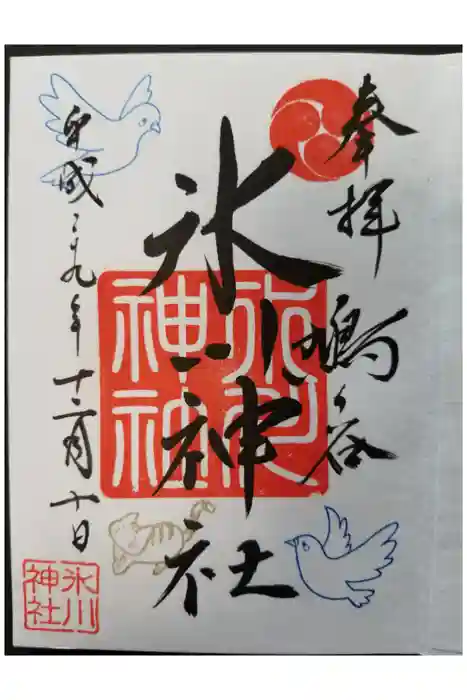 奉拝 鳩ヶ谷
氷川神社
氷川神社
平成二十九年十二月十日
氷川神社